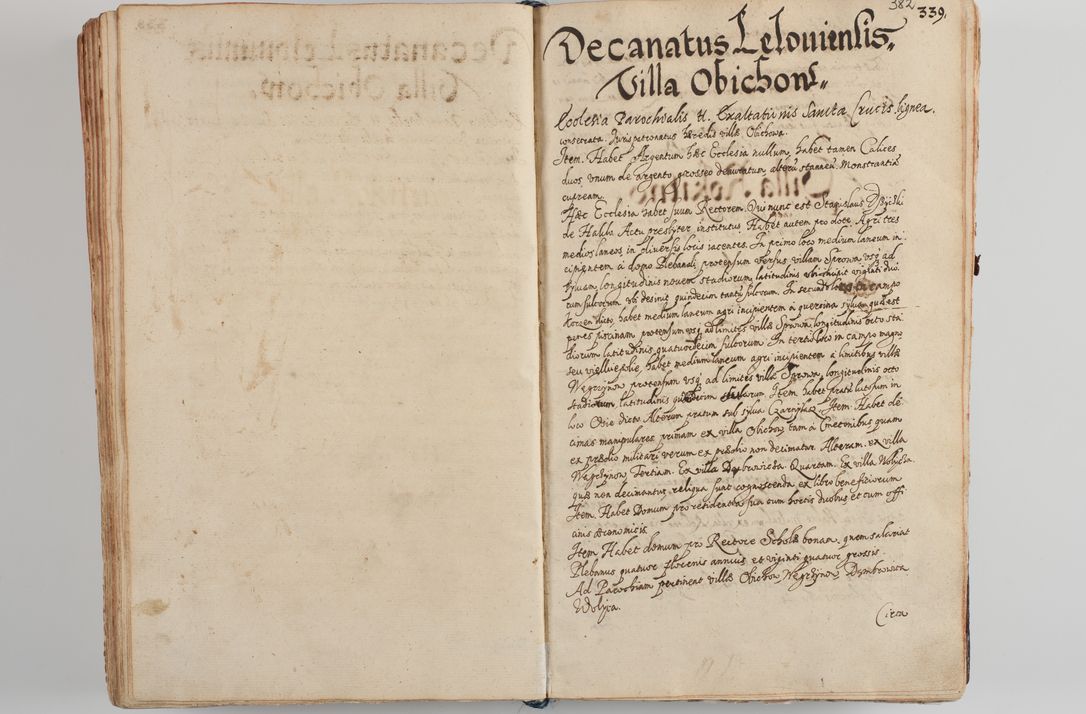 382
339.
Decanatus Leloviensis
Villa Obichow
Ecclesia Parochialis tt. Exaltationis Sanctæ Crucis lignea.
consecrata. Jurispatronatus hæredis villæ Obichowa.
Item. Habet Argentum hæc Ecclesia nullum, habet tamen Calices
duos, unum de argento grosseo deauratum, alterũ stanneũ. Monstrantiã
cupream.
Hæc Ecclesia habet suum Rectorem. Qui nunc est Stanislaus
de Actu presbyter institutus. Habet autem pro dote Agri tres
medios laneos, in diversis locis iacentes. In primo loco medium laneum in
cipientem a domo Plebanali protensum versus villam Sprowa usq ad
sylvam, longitudinis novem stadiorum, latitudinis ubi incipit viginti duo
rum sulcorum ubi desinit quindecim tantũ sulcorum. In secundo loco in campo
Korzen dicto, habet medium laneum agri incipientem a quercina sylvam quæ est
penes piscinam, protensum usq ad limites villæ Sprowa, longitudinis octo sta
diorum, latitudinis quatuordecim sulcorum. In tertio loco in campo magno
seu wielkie polie, habet medium laneum agri incipientem a limitibus villæ
Wegrzynow protensum usq ad limites villæ Sprowa, longitudinis octo
stadiorum, latitudinis Item. habet pratũ lutosum in
loco Odie dicto. Alterum pratum sub sylva Item. Habet de
cimas manipulares primam ex villa Obichow, tam a Cmetonibus quam
ex prædio militari verum ex prædio non decimatur. Alteram. ex villa
Wegrzynow, Tertiam. Ex villa Dębrowicza. Quartam. Ex villa Wolycza.
quæ non decimantur, reliqua sunt cognoscenda ex libro beneficiorum
Item. Habet Domum pro residentia sua cum hortis duobus et cum offi
cinis œconomicis
Item Habet domum pro Rectore Scholæ bonam, quem salariat
Plebanus quatuor florenis annuis et viginti quatuor grossis.
Ad Parochiam pertinent villæ Obichow Wegrzynow, Dymbrowica
Wolyca.
Circa